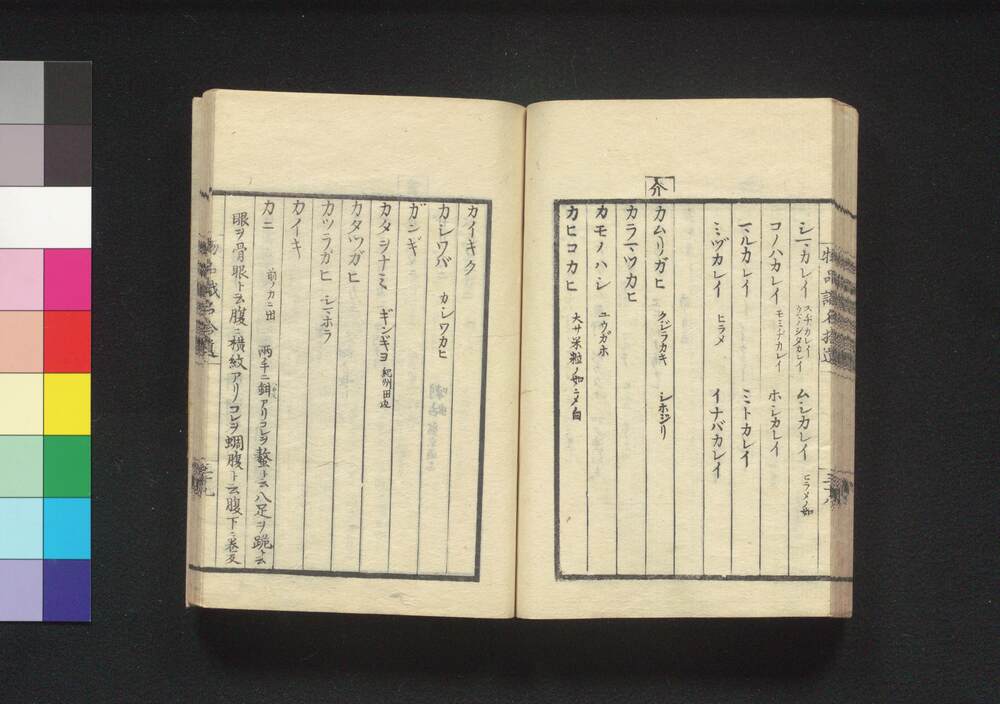 シマカレイ スナカレイ ウシノシタカレイ ムシカレイ ヒラメノ如
コノハカレイ モミヂカレイ ホシカレイ
マルカレイ ミトカレイ
ミヅカレイ ヒラメ イナバカレイ
介
カムリガヒ クジラカキ シホジリ
カラマツカヒ
カモノハシ ユウガホ
カヒコカヒ 大サ米粒ノ如ニメ白
カイキク
カシワバ カシワカヒ
ガンギ
カタヲナミ ギンギヨ 紀州田辺
カタツガヒ
カツラガヒ シマホラ
カイキ
カニ 前ノカニ出 両手ニ鉗アリコレヲ螯ト云八足ヲ跪ト云
眼ヲ骨眼ト云腹ニ横紋アリコレヲ蜩腹ト云腹下ニ巻